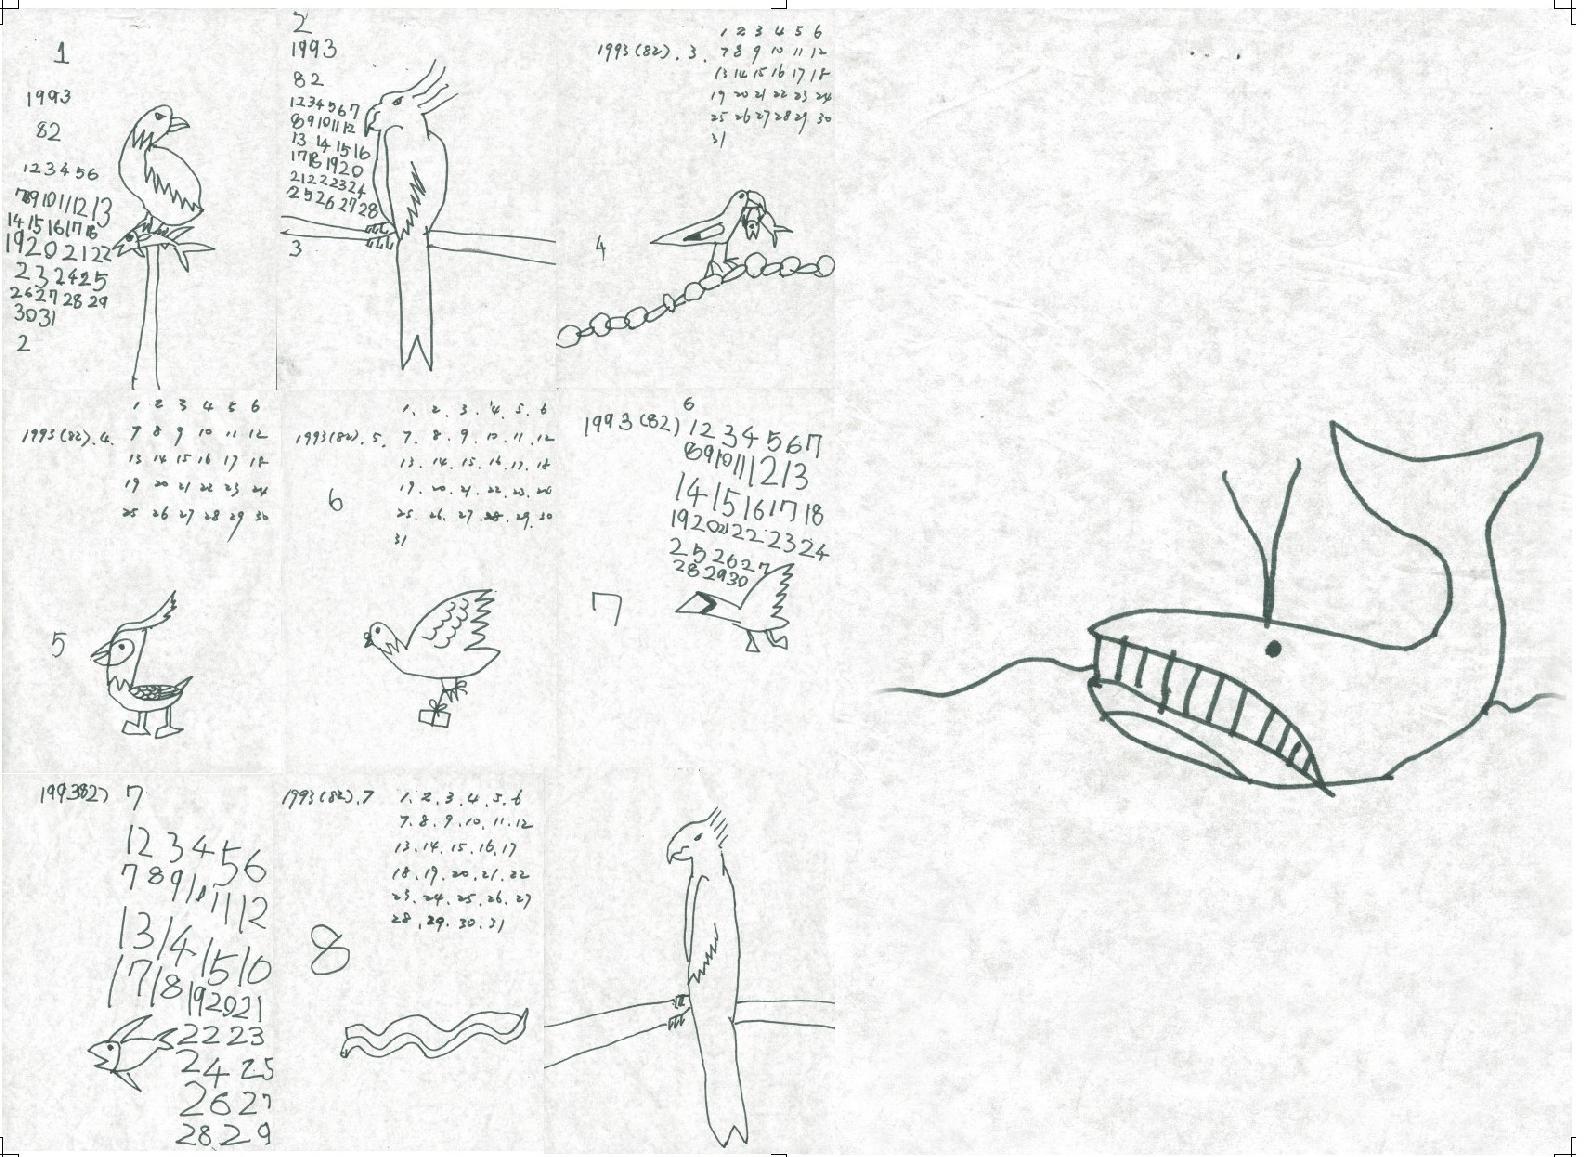 1
1993
82
123456
78910111213
1415161718
19202122
232425
26272829
3031
2
2
1993
82
1234567
89101112
13 14 1516
17181920
2122232324
25262728
3
1993(82).3.
1 2 3 4 5 6
7 8 9 10 11 12
13 14 15 16 17 18
19 20 21 22 23 24
25 26 27 28 29 30
31
4
1993(82).4.
1 2 3 4 5 6
7 8 9 10 11 12
13 14 15 16 17 18
19 20 21 22 23 24
25 26 27 28 29 30
5
1993(82).5.
1. 2. 3. 4. 5. 6
7. 8. 9. 10. 11. 12
13. 14. 15. 16. 17. 18
19. 20. 21. 22. 23. 24
25. 26. 27. 28. 29. 30
31
6
6
1993(82)
12 34567
8910111213
1415161718
192021222324
252627
282930
7
199382)
7
123456
789101112
13141510
1718192021
2223
2425
2627
2829
1993(82).7
1. 2. 3. 4. 5. 6
7. 8. 9. 10. 11. 12
13. 14. 15. 16. 17
18. 19. 20. 21. 22
23. 24. 25. 26. 27
28. 29. 30. 31
8